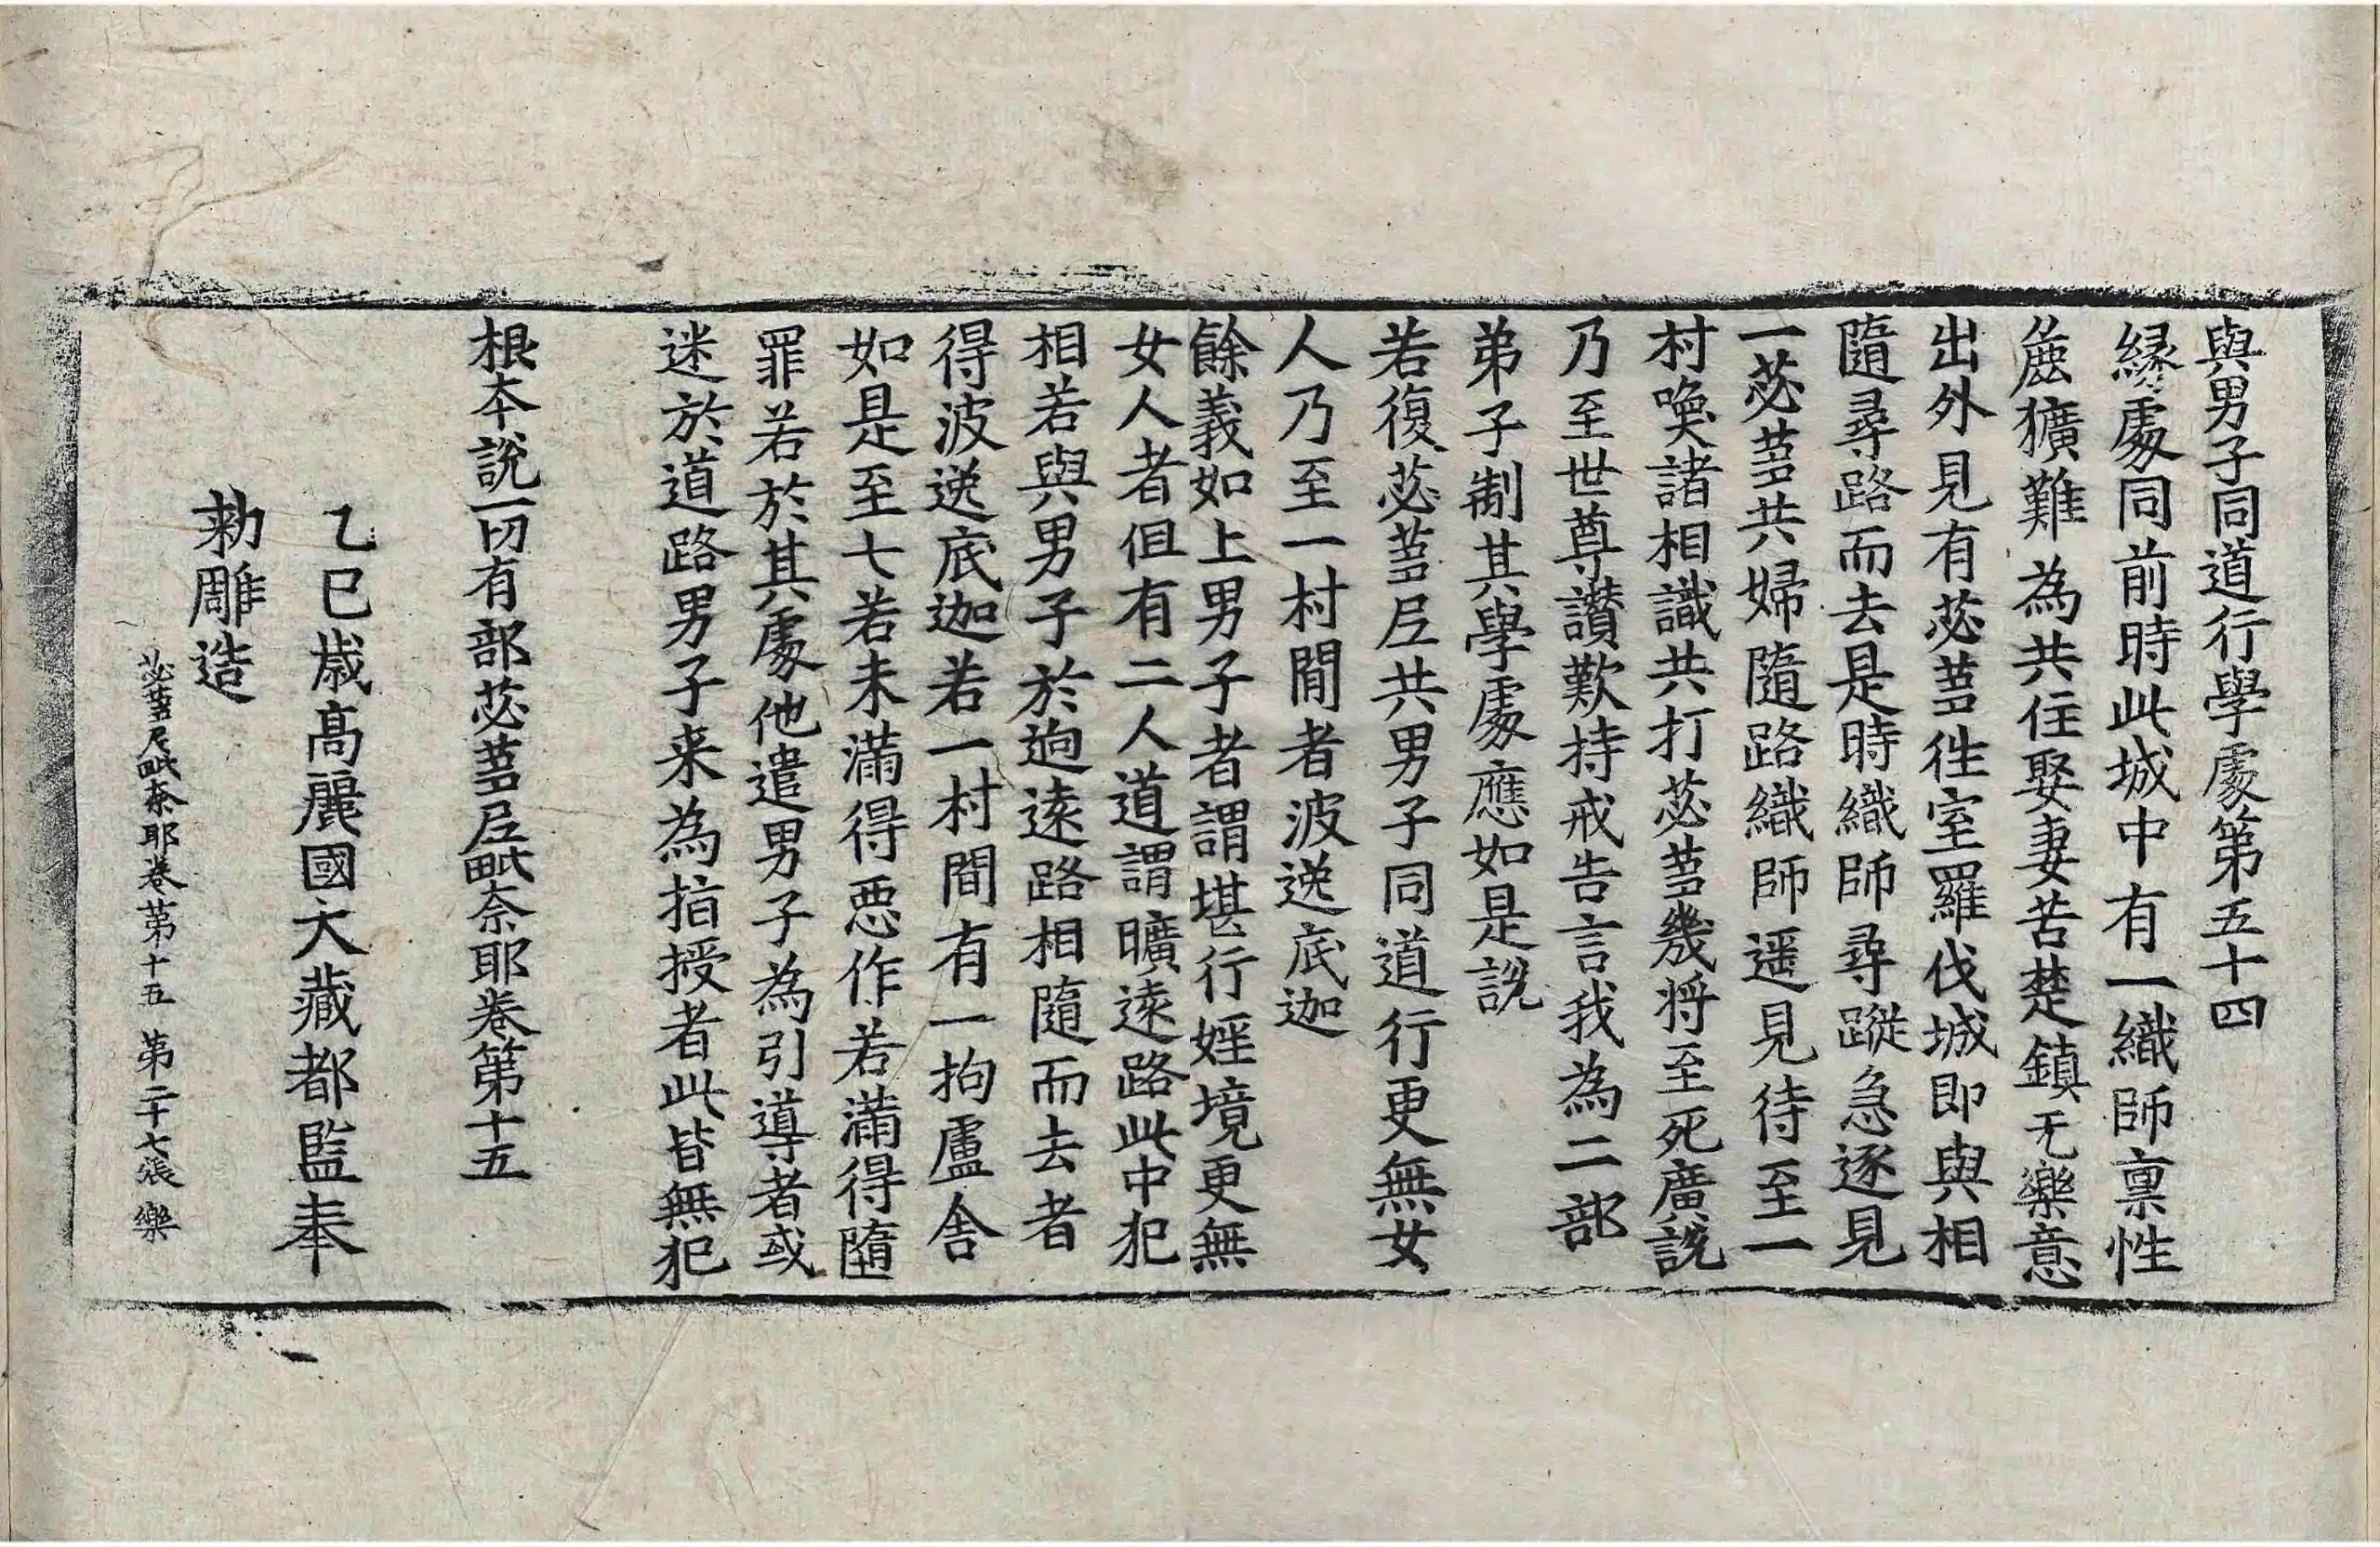 與男子同道行學處第五十四
緣處同前時此城中有一織師禀性
麁獷難為共住娶妻苦楚鎮无樂意
出外見有苾蒭徃室羅伐城即與相
隨尋路而去是時織師尋蹤急逐見
一苾蒭共婦隨路織師遥見待至一
村喚諸相識共打苾蒭幾將至死廣說
乃至世尊讃歎持戒告言我為二部
弟子制其學處應如是說
若復苾蒭尼共男子同道行更無女
人乃至一村間者波逸底迦
餘義如上男子者謂堪行婬境更無
女人者但有二人道謂曠遠路此中犯
相若與男子於逈遠路相隨而去者
得波逸底迦若一村間有一拘盧舍
如是至七若未滿得惡作若滿得墮
罪若於其處他遣男子為引導者或
迷於道路男子来為指授者此皆無犯
根本說一切有部苾蒭尼毗奈耶卷第十五
乙巳歳高麗國大藏都監奉
勅雕造
苾蒭尼毗奈耶卷第十五 第二十七張 樂